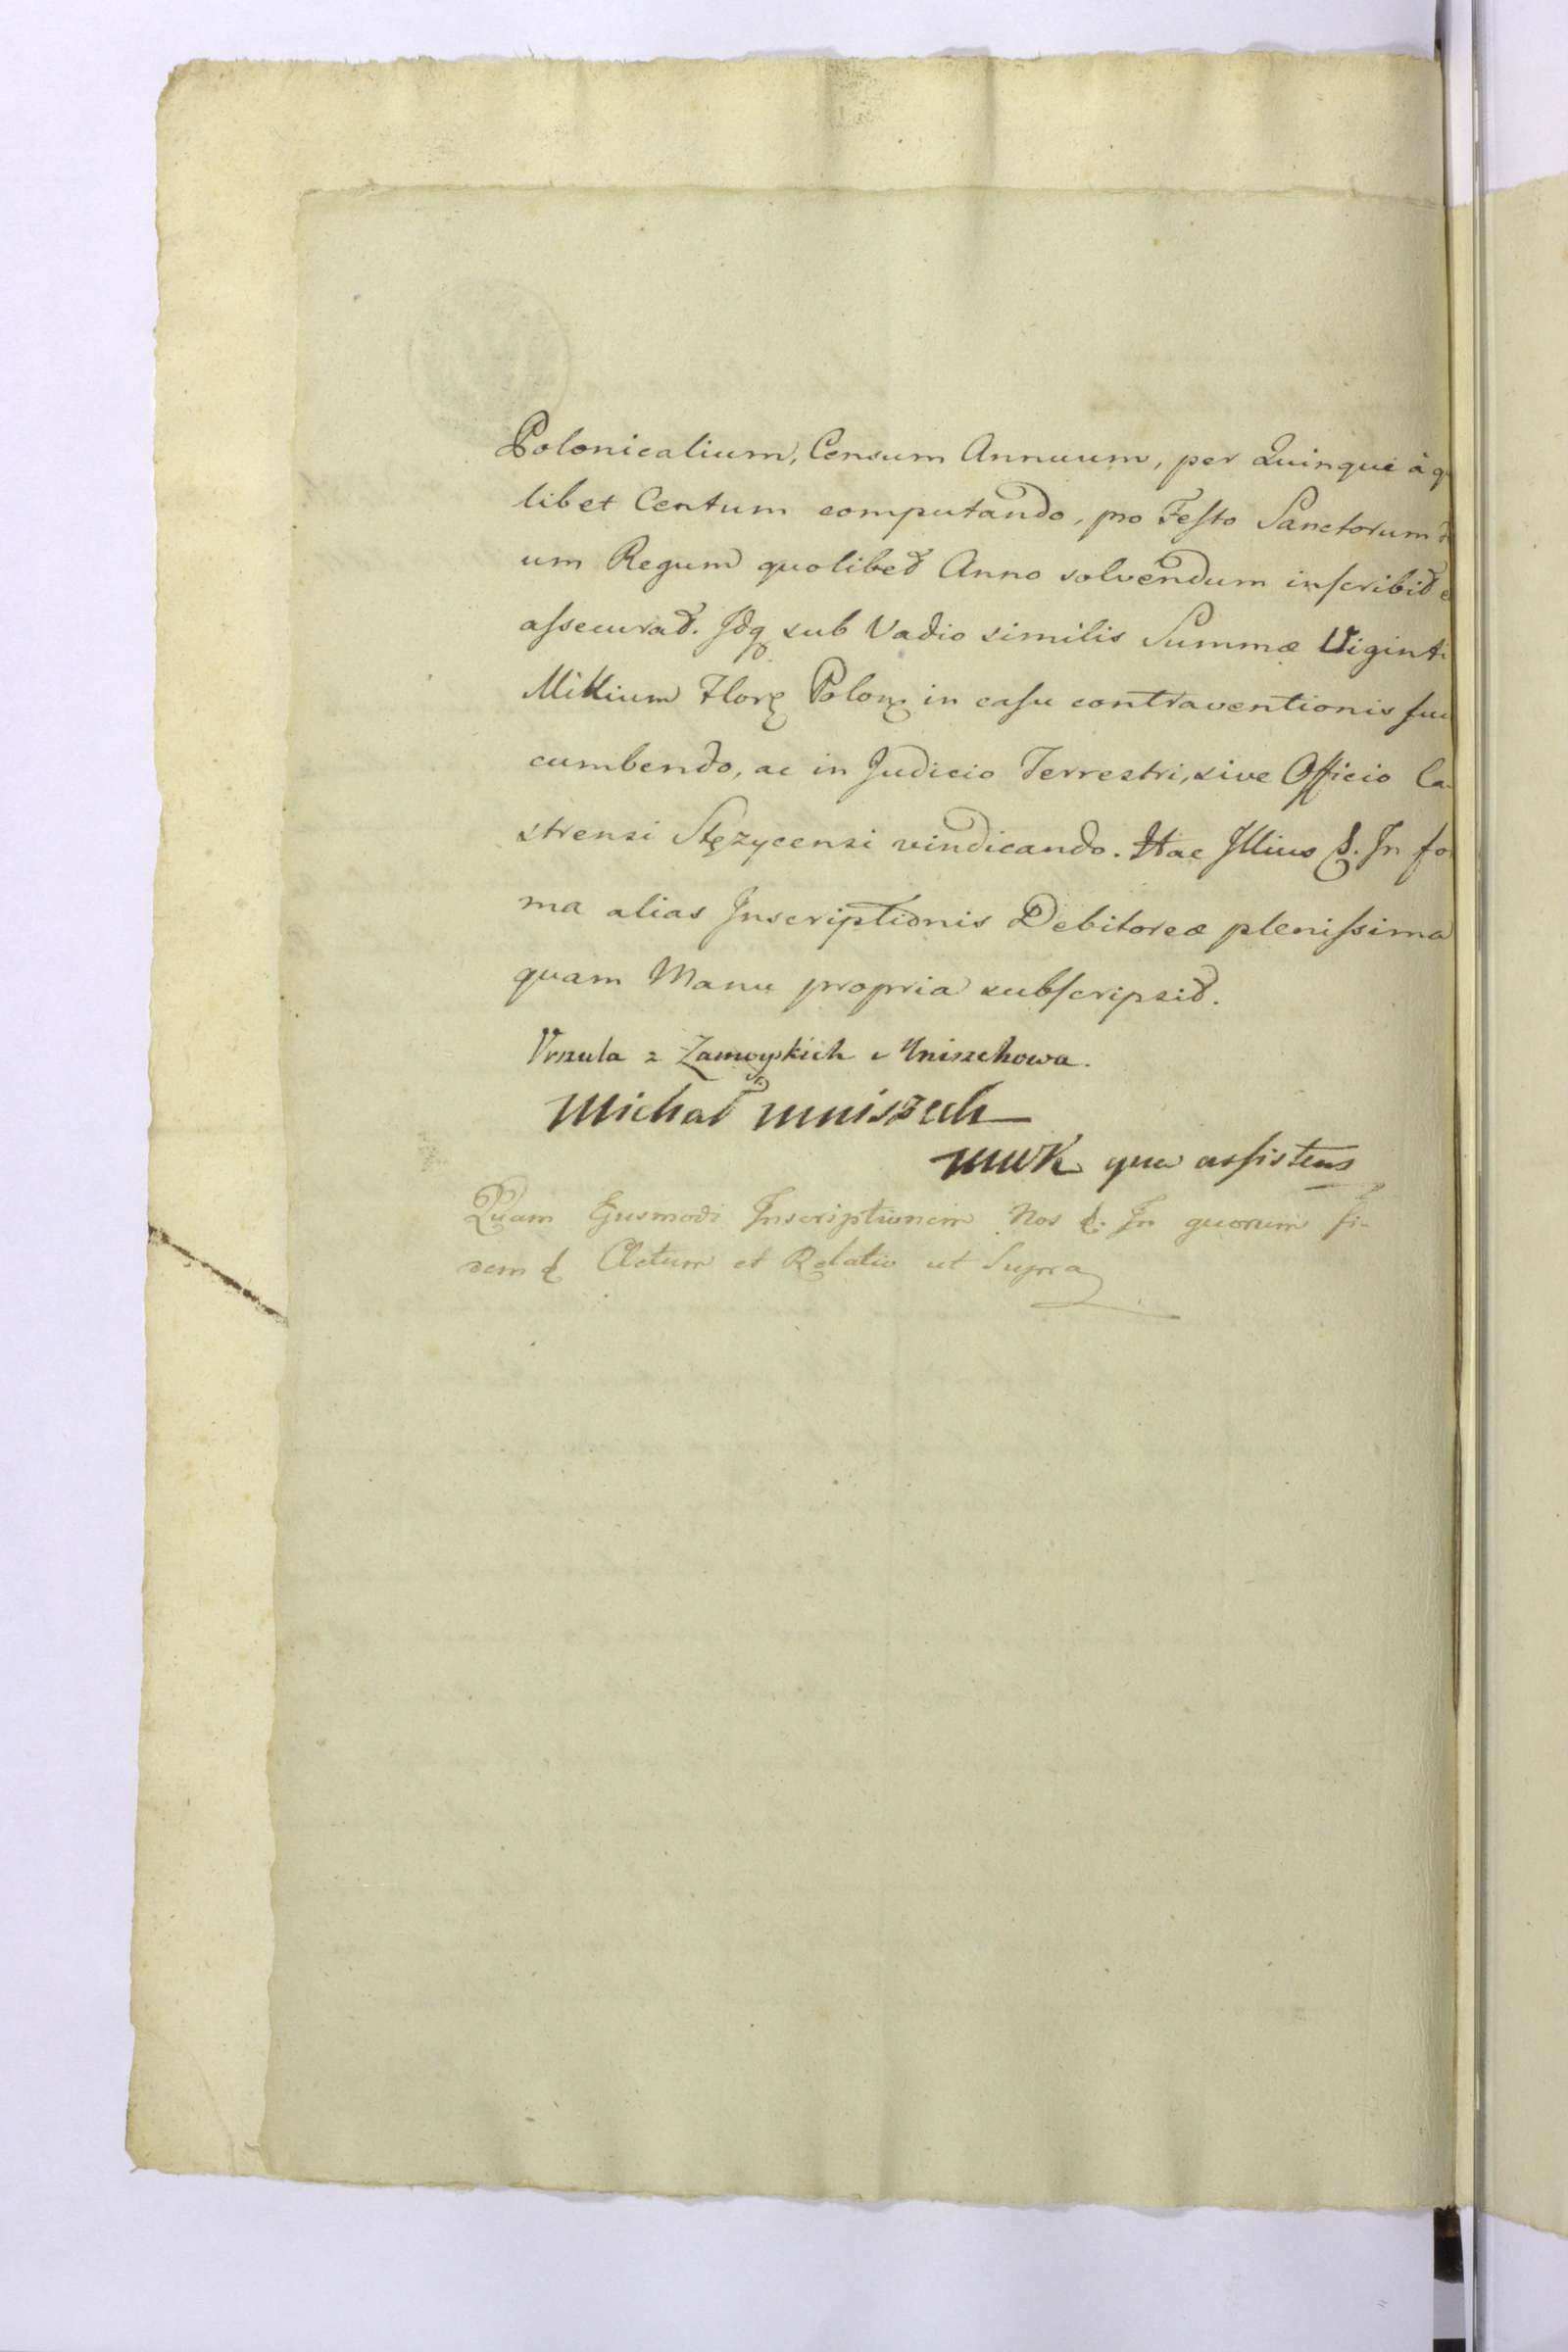 Polonicalium, Censum Annuum, per Quinque à q
libet Centum computando, pro Festo Sanctorum
um Regum quolibet Anno solvendum inscribit e
assecurat. Idq sub Vadio similis Summæ Viginti
Millium Flor Polon in casu contraventionis suc
cumbendo, ac in Judicio Terrestri, sive Officio Ca-
strensi Stęzycensi vindicando. Hac Illius &. In for
ma alias Inscriptionis Debitoreæ plenissima
quam Manu propria subscripsit.
Vrszula z Zamoyskich Mniszchowa.
Michał Mniszech
MWK qua assistens
Quam Ejusmodi Inscriptionem Nos &. In quorum fi-
dem & Actum et Relatio ut Supra